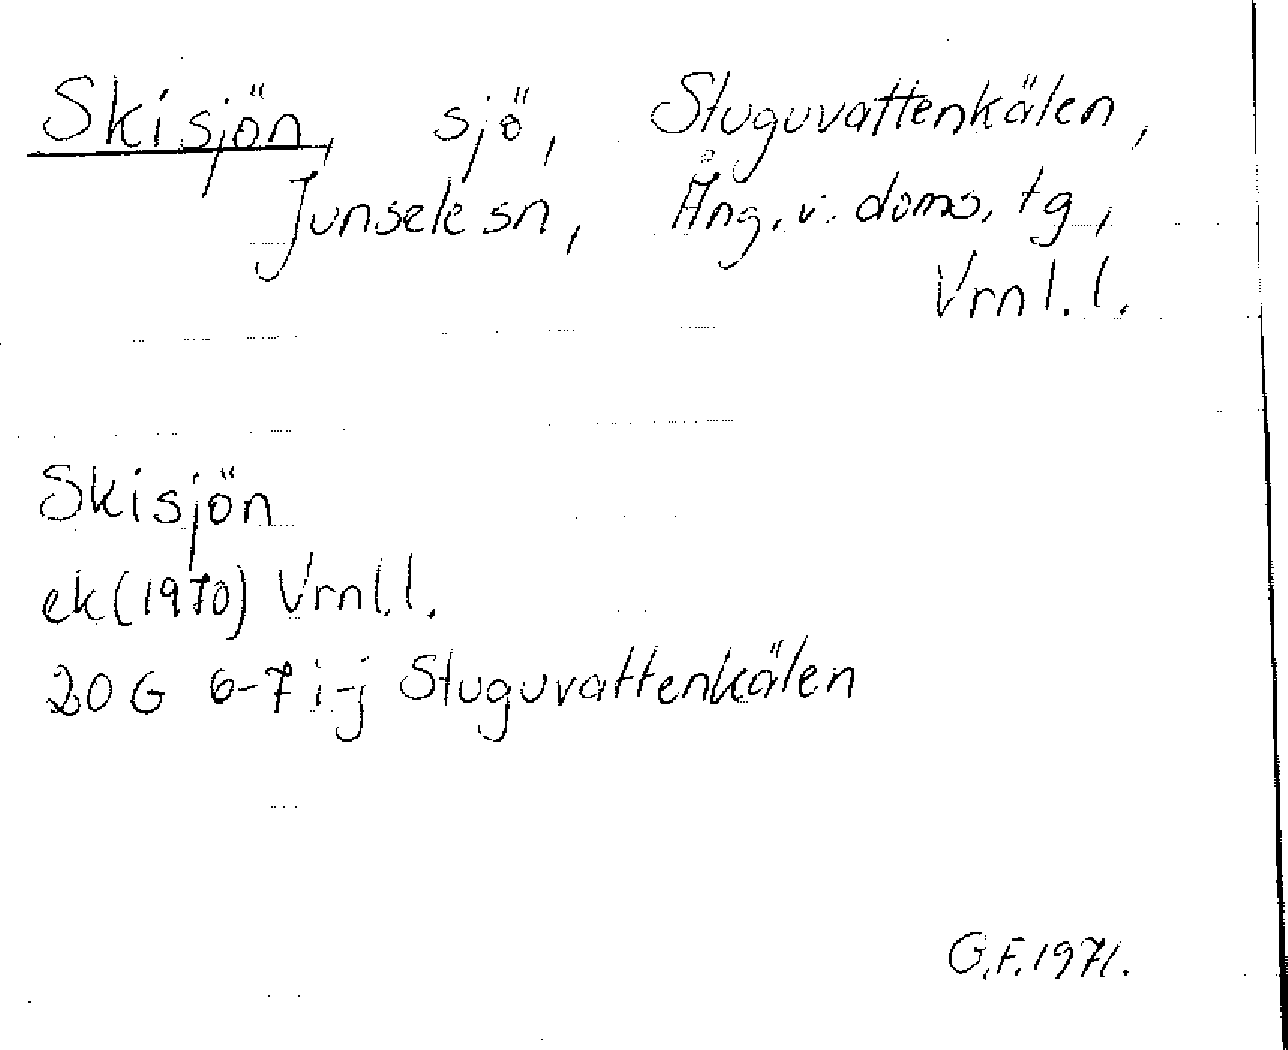 Skisjön, sjö, Stuguvattenkälen,
Junsele sn, Ång. v. doms. tg,
Vrnl. l.
Skisjön
ek (1970) Vrnl. l.
20 G 6-7 i-j Stuguvattenkälen
G.F. 1971.